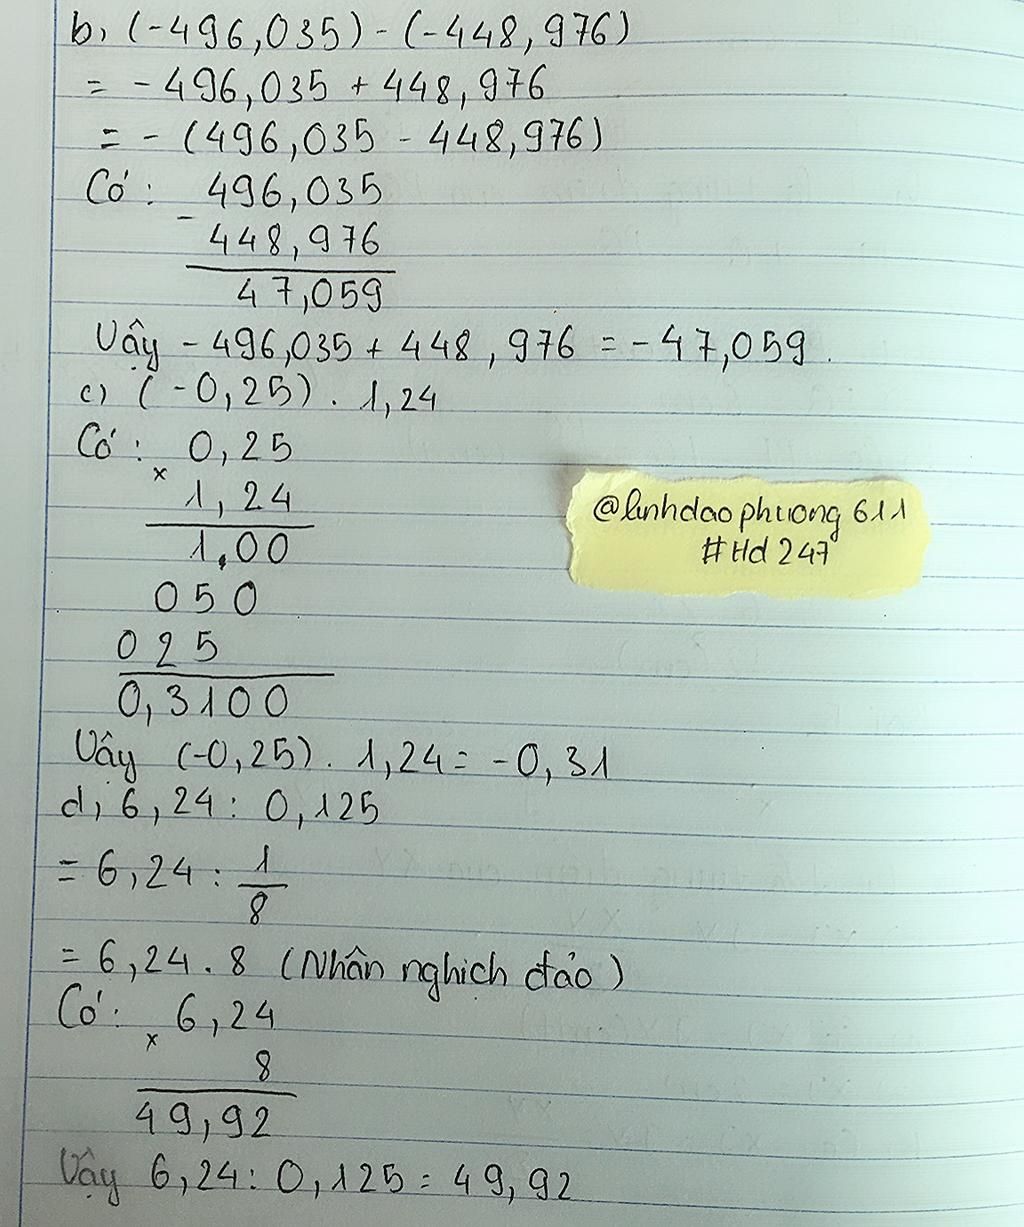 b, (-496,035) - (-448,976)
= - 496,035 + 448,976
= - (496,035 - 448,976)
Có: 496,035
-
448,976
47,059
Vậy - 496,035 + 448,976 = - 47,059.
c) (-0,25) . 1,24
Có: 0,25
x
1,24
1,00
050
025
0,3100
Vây (-0,25). 1,24 = -0,31
d, 6,24 : 0,125
= 6,24 : 1/8
= 6,24 . 8 (Nhân nghịch đảo)
Có: 6,24
x
8
49,92
Vậy 6,24 : 0,125 = 49,92
@linhdaophuong 611
#Hd 247